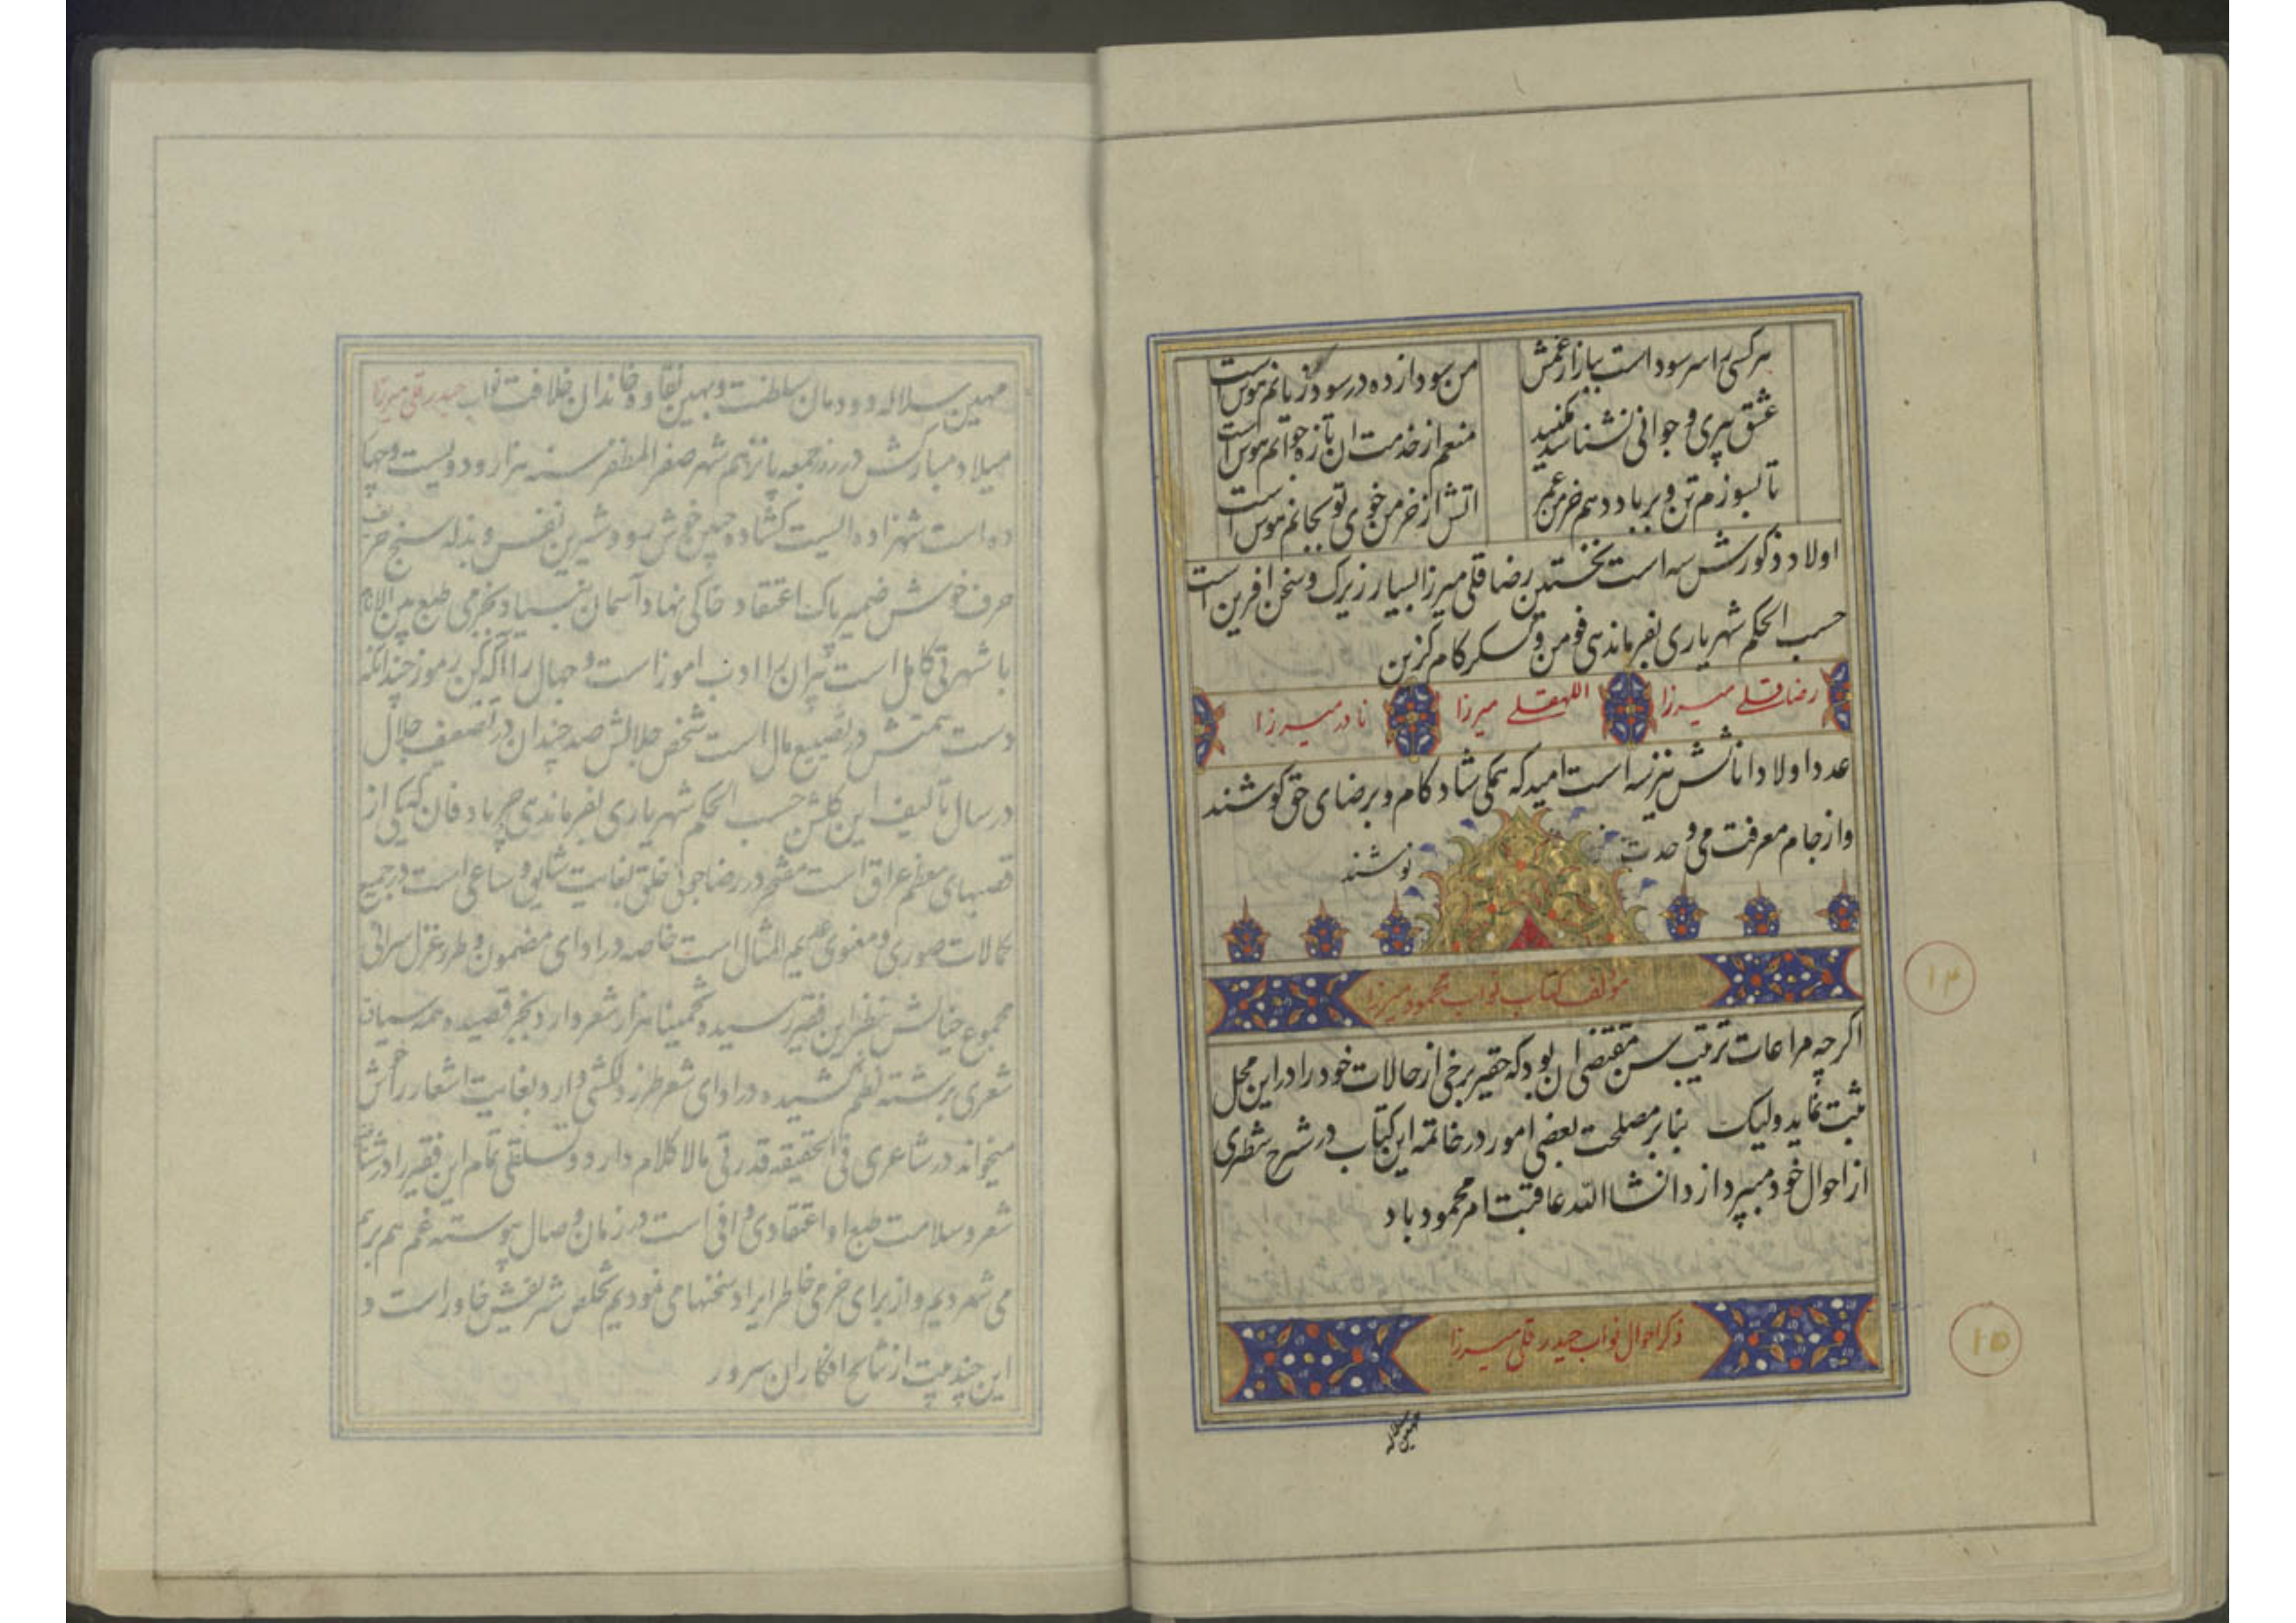 هر کسی را سر سودا است ببازار غمش من سودا زده در سود زیانم هوس است
عشق پیری و جوانی نشناسد مکنید منعم از خدمت ان تازه جوانم هوس است
تا بسوزم تن و بر باد دهم خرمن عمر اتش از خرمن خوی تو بجانم هوس است
اولاد ذکورش سه است نخستین رضا قلی میرزا بسیار زیرک و سخن افرین است
حسب الحکم شهریاری بفرماندهی فومن و کسکر کام گزین
رضا قلی میرزا اللهقلی میرزا نادر میرزا
عدد اولاد اناثش نیز سه است امید که همگی شاد کام و برضای حق کوشند
و از جام معرفت می وحدت
نوشند
مولف کتاب نواب محمود میرزا
۱۴
اگر چه مراعات ترتیب سن مقتضی ان بود که حقیر برخی از حالات خود را در این محل
ثبت نماید ولیک بنابر مصلحت بعضی امور در خاتمه این کتاب در شرح شطری
از احوال خود میپردازد انشاالله عاقبت امر محمود باد
ذکر احوال نواب حیدر قلی میرزا
۱۵
مهین سلاله دودمان سلطنت و بهین نقاوه خاندان خلافت نواب حیدر قلی میرزا
میلاد مبارکش در روز جمعه پانزدهم شهر صفر المظفر سنه هزار و دویست و چها
ده است شهزاده ایست کشاده جبین خوش رو و شیرین نفس و بذله سنج حریف
حرف خوش ضمیر پاک اعتقاد خاکی نهاد آسمان بنیاد بخرمی طبع بین الانام
با شهرتی کامل است پیران را ادب اموز است و جهال را آگه کن رموز چندانکه
دست همتش در تضییع مال است شخص جلالش صد چندان در تضعیف جلال
در سال تألیف این گلشن حسب الحکم شهریاری بفرماندهی جرباد قان که یکی از
قصبهای معظم عراق است مفتخر در رضا جوئی خلق بغایت شایق و ساعی است در جمیع
کمالات صوری و معنوی عدیم المثال است خاصه در ادای مضمون و طرز غزل سرائی
مجموع خیالش بنظر این فقیر رسیده تخمینا هزار شعر دارد بجز قصیده همه سیاق
شعری برشته نظم کشیده در ادای شعر طرز دلکشی دارد بغایت اشعار را خوش
میخواند در شاعری فی الحقیقه قدرتی مالا کلام دارد و تمام این فقیر را در
شعر و سلامت طبع او اعتقادی وافی است در زمان وصال پیوسته غم هم بر هم
می شمردیم و از برای خرمی خاطر ایراد سخنها می نمودیم تخلص شریفش خاور است و
این چند بیت از نتایج افکار ان سرور